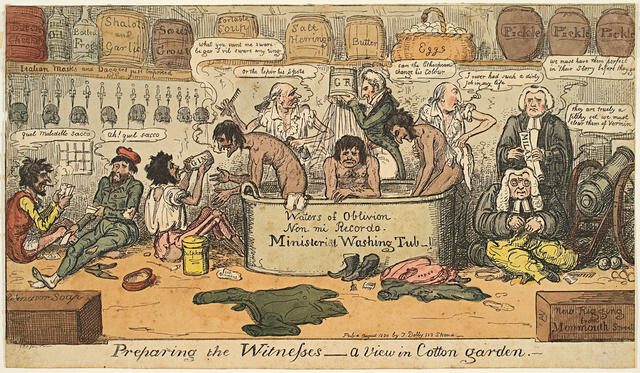 Boiled
Frogs
Shalots
and
Garlic
Sour
Grout
Portable
Soup
Salt
Herrings
Butter
Eggs
Pickle
Pickle
Pickle
Italian Masks and Daggers just imported
What you want me sware
be gar I vil sware any ting
or the leper his spots
can the Ethiopian
change his Colour
I never had such a dirty
job in my life
we must have them perfect
in their Story before they go
they are truely a
filthy set we must
clear them of Vermin
qual Maledetto sacco
ah! qual sacco
G R
Waters of Oblivion
Non mi Recordo.
Ministerial Washing Tub
Sulphur
Windsor Soap
New Rigging
from
Monmouth Street
August 1820 by T. Dolby Strand
Preparing the Witneſses — a View in Cotton garden. —